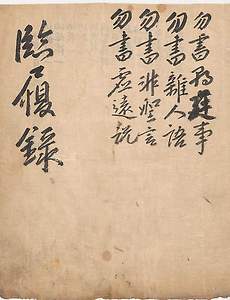 勿書朝廷事
勿書雜人語
勿書非聖言
勿書虛遠說
臨履錄